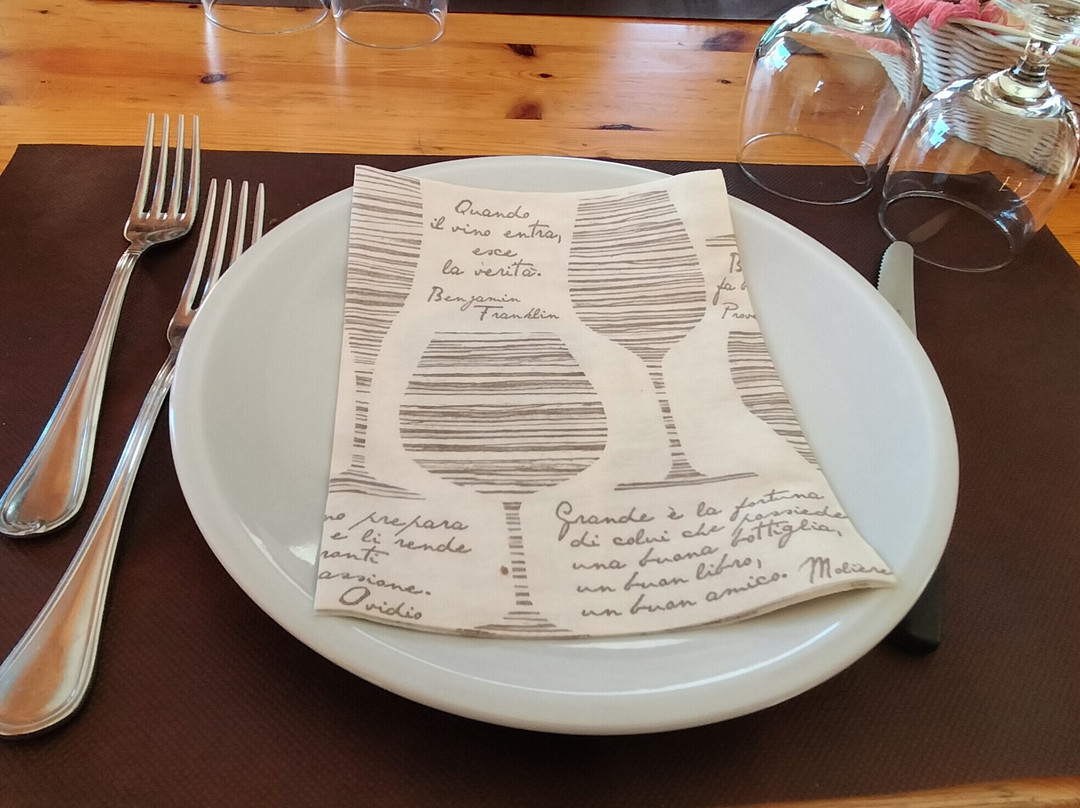 Quando
il vino entra,
esce
la verità.
Benjamin
Franklin
B
fa b
Prove
no prepara
e li rende
ranti
assione.
Ovidio
Grande è la fortuna
di colui che possiede
una buona bottiglia,
un buon libro,
un buon amico. Molière